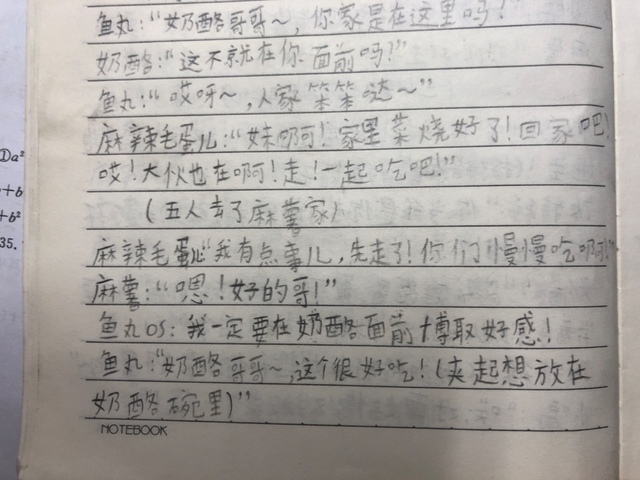 鱼丸:“奶酪哥哥~,你家是在这里吗?”
奶酪:“这不就在你面前吗?”
鱼丸:“哎呀~,人家笨笨哒~”
麻辣毛蛋儿:“妹啊!家里菜烧好了!回家吧!
哎!大伙也在啊!走!一起吃吧!”
(五人去了麻薯家)
麻辣毛蛋儿“我有点事儿,先走了!你们慢慢吃啊!”
麻薯:“嗯!好的哥!”
鱼丸OS:我一定要在奶酪面前博取好感!
鱼丸:“奶酪哥哥~,这个很好吃!(夹起想放在
奶酪碗里)”
NOTEBOOK
①a²
+b
+b²
35.